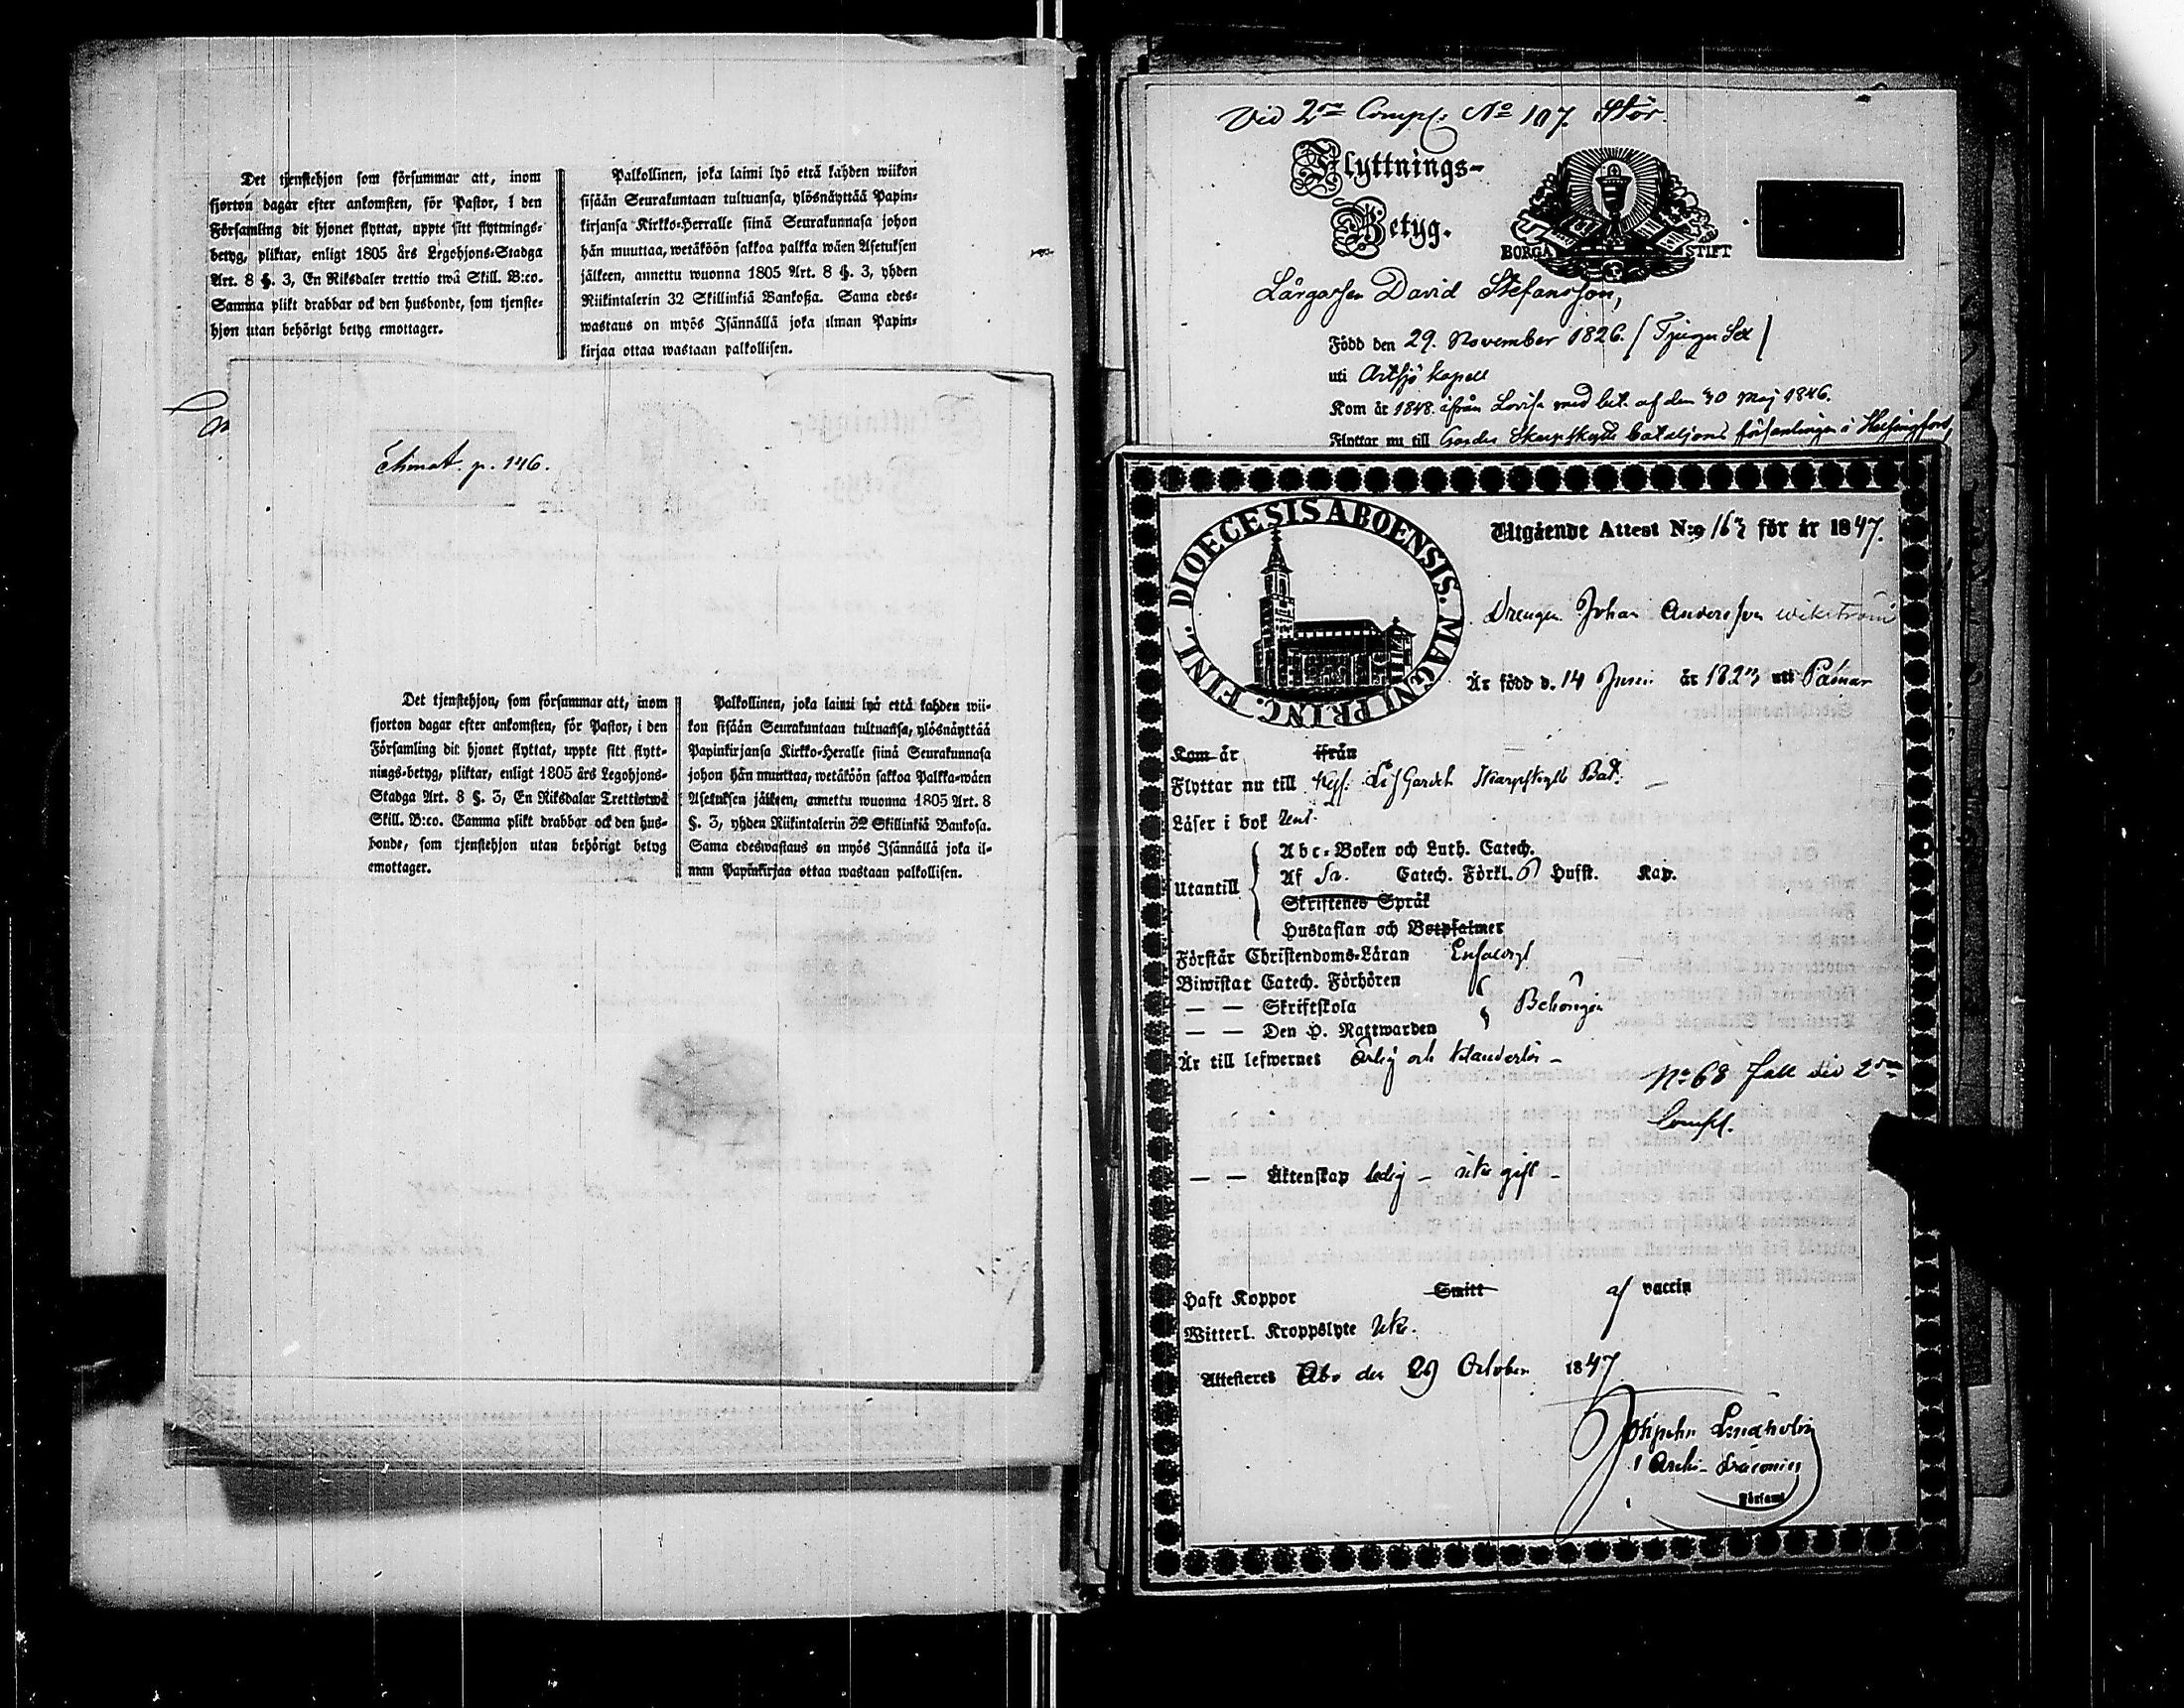 Det tjenstehjon som försummar att, inom
fjorton dagar efter ankomsten, för Pastor, i den
Församling dit hjonet flyttat, uppte sitt flyttnings-
betyg, pliktar, enligt 1805 års Legohjons-Stadga
Art. 8 §. 3, En Riksdaler trettio twå Skill. B:co.
Samma plikt drabbar ock den husbonde, som tjenste-
hjon utan behörigt betyg emottager.
Palkollinen, joka laimi lyö että kahden wiikon
sisään Seurakuntaan tultuansa, ylösnäyttää Papin-
kirjansa Kirkko-Herralle siinä Seurakunnasa johon
hän muuttaa, wetäköön sakkoa palkka wäen Asetuksen
jälkeen, annettu wuonna 1805 Art. 8 §. 3, yhden
Riikintalerin 32 Skillinkiä Bankoßa. Sama edes-
wastaus on myös Isännällä joka ilman Papin-
kirjaa ottaa wastaan palkollisen.
p. 146.
Det tjenstehjon, som försummar att, inom
fjorton dagar efter ankomsten, för Pastor, i den
Församling dit hjonet flyttat, uppte sitt flytt-
nings-betyg, pliktar, enligt 1805 års Legohjons-
Stadga Art. 8 §. 3, En Riksdalar Trettiotwå
Skill. B:co. Samma plikt drabbar ock den hus-
bonde, som tjenstehjon utan behörigt betyg
emottager.
Palkollinen, joka laimi lyö että kahden wii-
kon sisään Seurakuntaan tultuansa, ylösnäyttää
Papinkirjansa Kirkko-Heralle siinä Seurakunnasa
johon hän muuttaa, wetäköön sakkoa Palkka-wäen
Asetuksen jälkeen, annettu wuonna 1805 Art. 8
§. 3, yhden Riikintalerin 32 Skillinkiä Bankosa.
Sama edeswastaus on myös Isännällä joka il-
man Papinkirjaa ottaa wastaan palkollisen.
Vid 2dra Comp. No 107. Stör.
Flyttnings-
Betyg.
BORGÅ STIFT
David Stefansson,
Född den 29. November 1826.
uti Artsjö kapell
Kom år 1848. ifrån Lovisa med bet. af den 30 Maj 1846.
Flyttar nu till Gardes Skarpskytte bataljons församlingen i Helsingfors,
DIOECESIS ABOENSIS. MAGNI PRINC. FINL.
Utgående Attest N:o 163 för år 1847.
Drengen Johan Andersson Wikström
Är född d. 14 Junii år 1823 uti Pämar
Kom år ifrån
Flyttar nu till Kejs. Lif Gardets Skarpskytte Bat.
Läser i bok
Utantill
Abc-Boken och Luth. Catech.
Af Catech. Förkl. Husst. Kap.
Skriftenes Språk
Hustaflan och Botpsalmer
Förstår Christendoms-Läran Enfaldigt
Biwistat Catech. Förhören
— — Skriftskola Behörigen
— — Den H. Nattwarden
Är till lefwernes Ärlig och klanderlös -
No 68 Fall vid 2dra
Comp.
— — Äktenskap ledig - icke gift -
Haft Koppor Smitt af vaccin
Witterl. Kroppslyte icke.
Attesteres Åbo den 29 October 1847.
Lindholm
Archi-Diaconus
Församl.